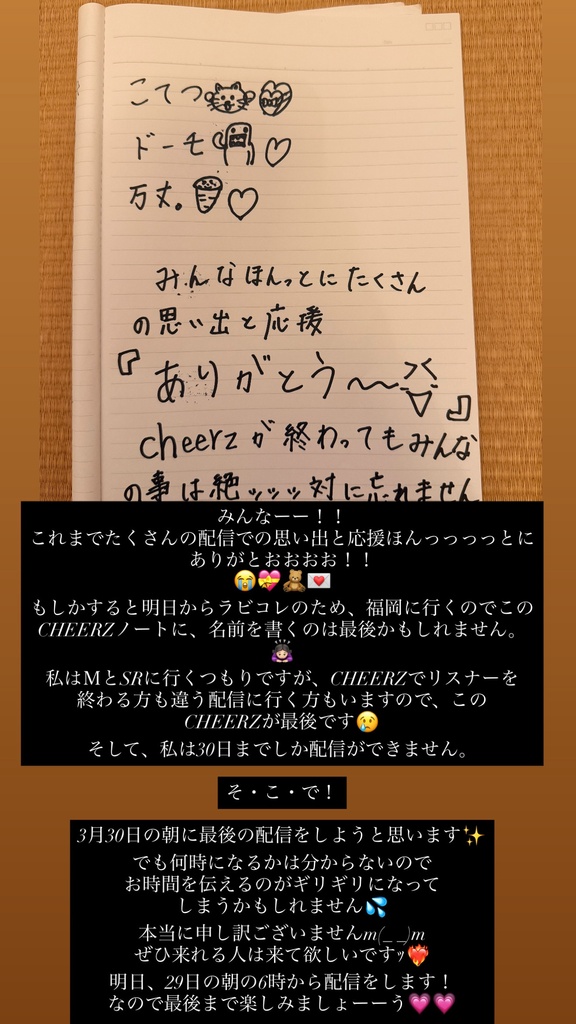 こてつ
ドーモ
万丈。
みんなほんっとにたくさん
の思い出と応援
『ありがとう〜〜』
cheerzが終わってもみんな
の事は絶ッッッ対に忘れません
みんなーー！！
これまでたくさんの配信での思い出と応援ほんっっっっとに
ありがとおおおお！！
😭💝🧸💌
もしかすると明日からラビコレのため、福岡に行くのでこの
CHEERZノートに、名前を書くのは最後かもしれません。
🙇🏻‍♀️
私はMとSRに行くつもりですが、CHEERZでリスナーを
終わる方も違う配信に行く方もいますので、この
CHEERZが最後です😢
そして、私は30日までしか配信ができません。
そ・こ・で！
3月30日の朝に最後の配信をしようと思います✨
でも何時になるかは分からないので
お時間を伝えるのがギリギリになって
しまうかもしれません💦
本当に申し訳ございませんm(_ _)m
ぜひ来れる人は来て欲しいですｯ❤️‍🔥
明日、29日の朝の6時から配信をします！
なので最後まで楽しみましょーーう💗💗